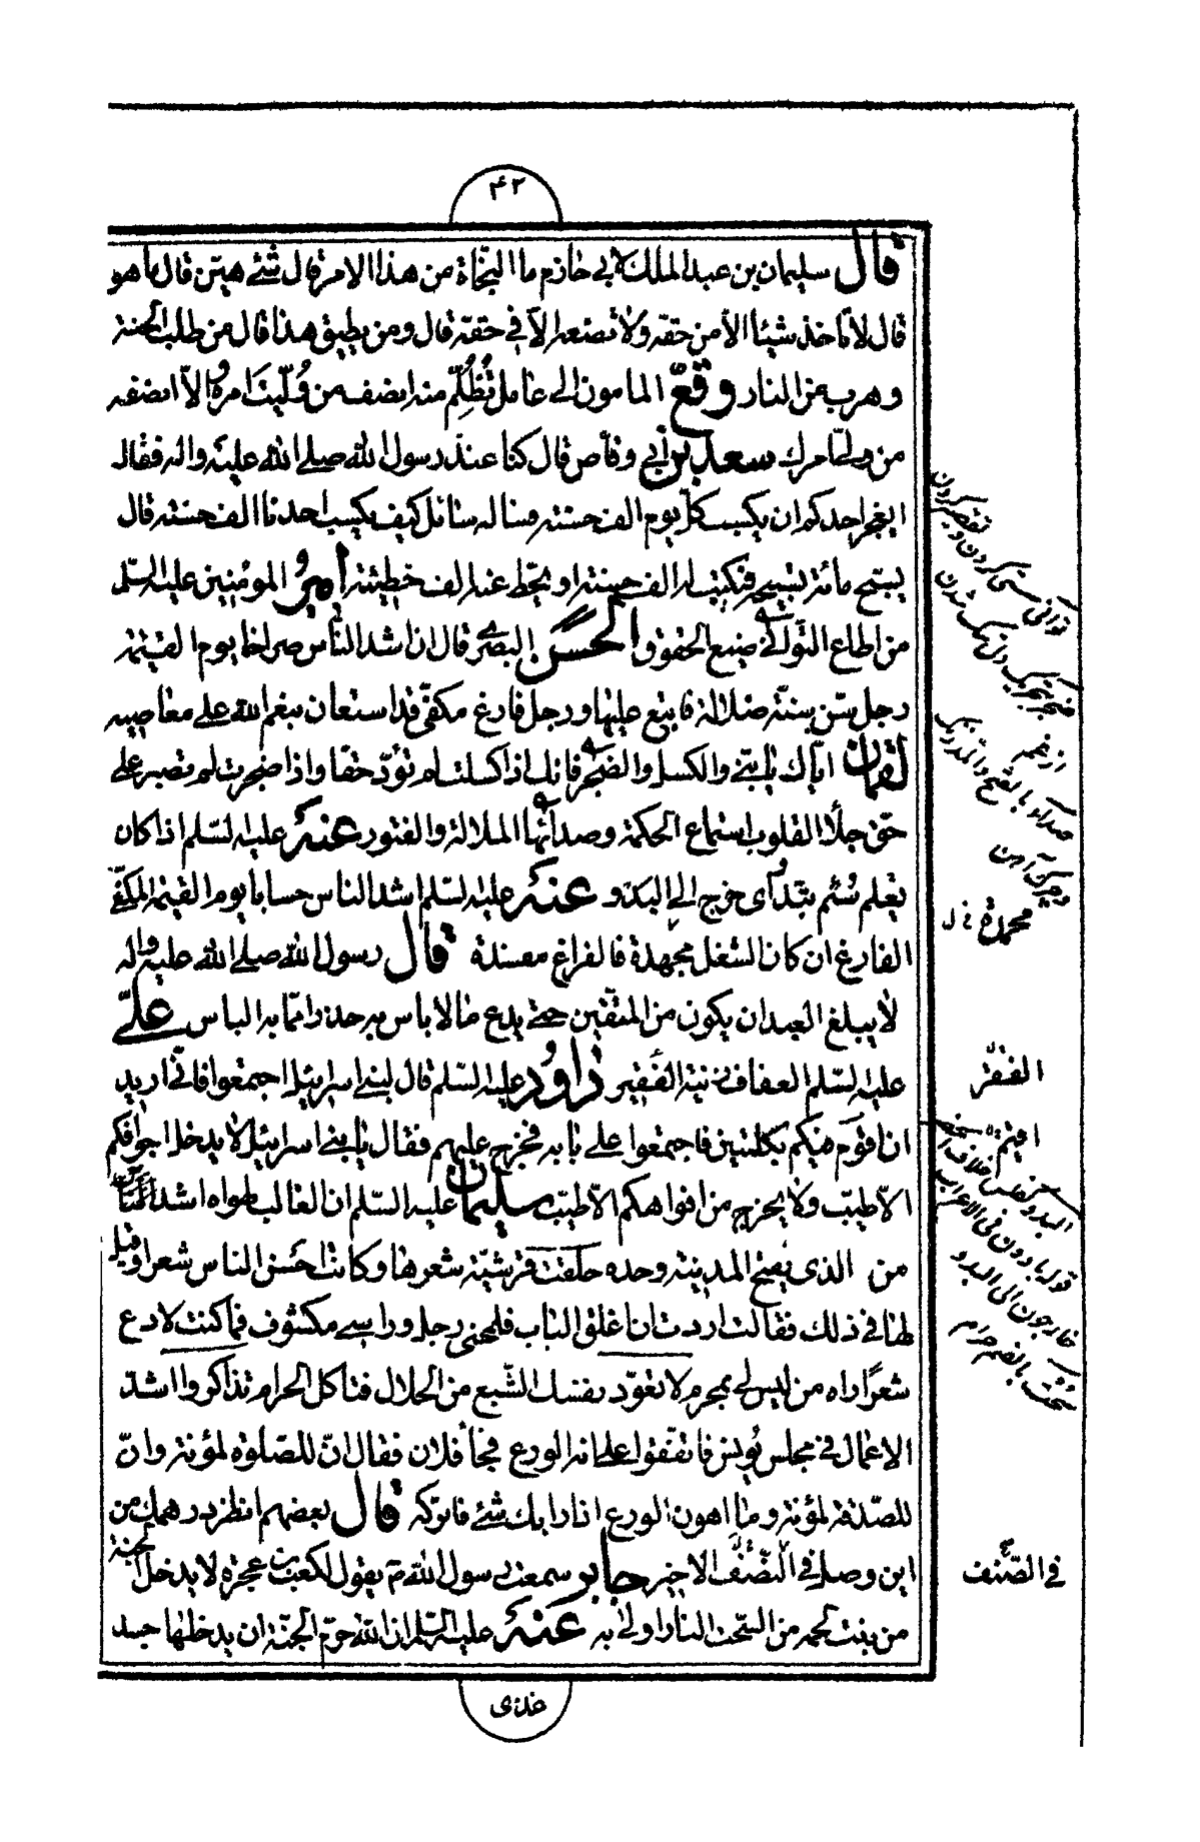 ۴۲
قال سليمان بن عبد الملك لابي حازم ما النجاة من هذا الامر قال شئ هين قال ما هو
قال لا تاخذ شيئا الا من حقه ولا تضعه الا في حقه قال ومن يطيق هذا قال من طلب الجنة
وهرب من النار وقّع المامون الى عامل تُظُلِّم منه انصف من وُلّيتَ امرهُ والا انصفه
من ولّى امرك سعد بن أبي وقاص قال كنا عند رسول الله صلى الله عليه واله فقال
ايعجز احدكم ان يكسب كل يوم الف حسنة فساله سائل كيف يكسب احدنا الف حسنة قال
يسبّح مائة تسبيحة فتكتب له الف حسنة او يحط عنه الف خطيئة امير المومنين عليه السلم
من اطاع التوانى ضيع الحقوق الحسن البصرى قال ان اشد الناس صراخا يوم القيمة
رجل سنّ سنّة ضلالة فاتبع عليها ورجل فارغ مكفّى قد استعان بنعم الله على معاصيه
لقمان اياك يا بنى والكسل والضجر فانك اذا كسلت لم تؤدّ حقا واذا ضجرت لم تصبر على
حق جلاء القلوب استماع الحكمة وصداؤها الملالة والفتور عنه عليه السلم اذا كان
يعلم سُئم بَدأ اى خرج الى البدو عنه عليه السلم اشد الناس حسابا يوم القيمة المكفّى
الفارغ ان كان الشغل مجهدة فالفراغ مفسدة قال رسول الله صلى الله عليه واله
لا يبلغ العبد ان يكون من المتقين حتى يدع ما لا باس به حذرا مما به الباس علىّ
عليه السلم العفاف زينة الفقير داوُد عليه السلم قال لبنى اسرائيل اجتمعوا فانّى اريد
ان اقوم فيكم بكلمتين فاجتمعوا على بابه فخرج عليهم فقال يا بنى اسرائيل لا يدخل اجوافكم
الا طيّب ولا يخرج من افواهكم الا طيّب سليمان عليه السلم ان الغالب لهواه اشد
من الذى يفتح المدينة وحده حلقت قرشيّة شعرها وكانت احسن الناس شعرا وقيل
لها في ذلك فقالت اردت ان اغلق الباب فلمحنى رجل وراسى مكشوف فما كنت لادع
شعرًا راه من ليس لى بمحرم لا تعوّد نفسك الشبع من الحلال فتاكل الحرام تذاكروا اشد
الاعمال في مجلس يُونس فاتفقوا على انه الورع فجاء فلان فقال انّ للصلوة لمؤنة وانّ
للصدقة لمؤنة وما اهون الورع اذا رابك شئ فاتركه قال بعضهم انظر درهمك من
اين وصل في الصَّفِّ الاخير جابر سمعت رسول الله ص يقول لكعب بن عجرة لا يدخل الجنة
من ينبت لحمه من السّحت النار اولى به عنه عليه السلم ان الله حرّم الجنّة ان يدخلها جسد
غذى
محمدة ل
الفقر
في الصّف